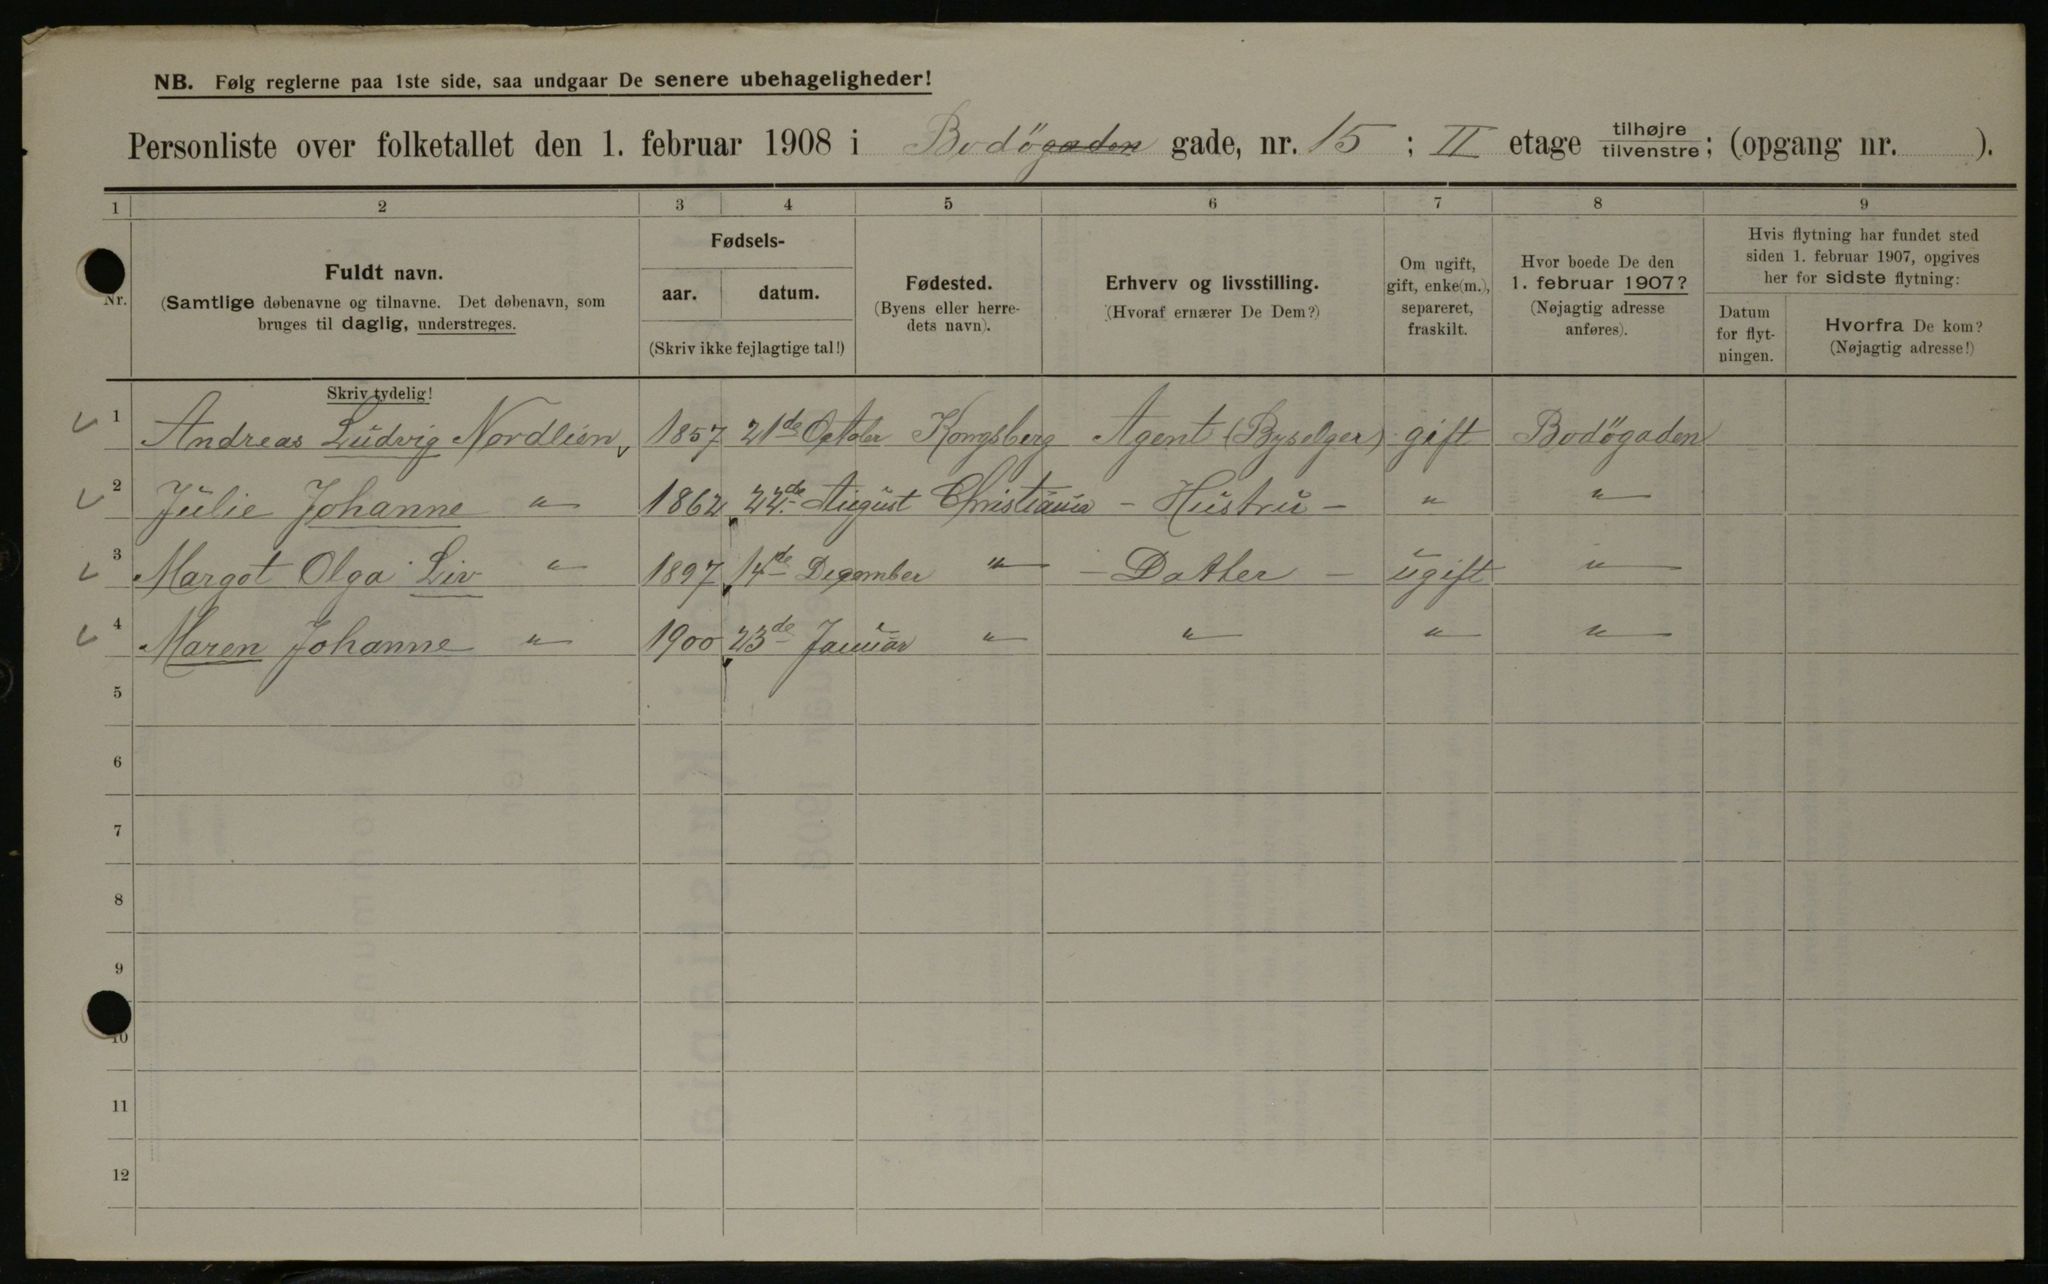 NB. Følg reglerne paa 1ste side, saa undgaar De senere ubehageligheder!
Personliste over folketallet den 1. februar 1908 i Bodögaden gade, nr. 15 ; II etage tilhøjre tilvenstre ; (opgang nr. ).
1 2 3 4 5 6 7 8 9
Nr.
Fuldt navn.
(Samtlige døbenavne og tilnavne. Det døbenavn, som
bruges til daglig, understreges.
Skriv tydelig!
Fødsels-
aar. datum.
(Skriv ikke fejlagtige tal!)
Fødested.
(Byens eller herre-
dets navn).
Erhverv og livsstilling.
(Hvoraf ernærer De Dem?)
Om ugift,
gift, enke(m.),
separeret,
fraskilt.
Hvor boede De den
1. februar 1907?
(Nøjagtig adresse
anføres).
Hvis flytning har fundet sted
siden 1. februar 1907, opgives
her for sidste flytning:
Datum
for flyt-
ningen.
Hvorfra De kom?
(Nøjagtig adresse!)
1 Andreas Ludvig Nordlien, 1857 21de Kongsberg Agent (Byselger) gift Bodögaden
2 Julie Johanne " 1862 22de August Christiania - Hustru - " "
3 Margot Olga Liv " 1897 14de December " - Datter - ugift "
4 Maren Johanne " 1900 23de Januar " " " "
5
6
7
8
9
10
11
12